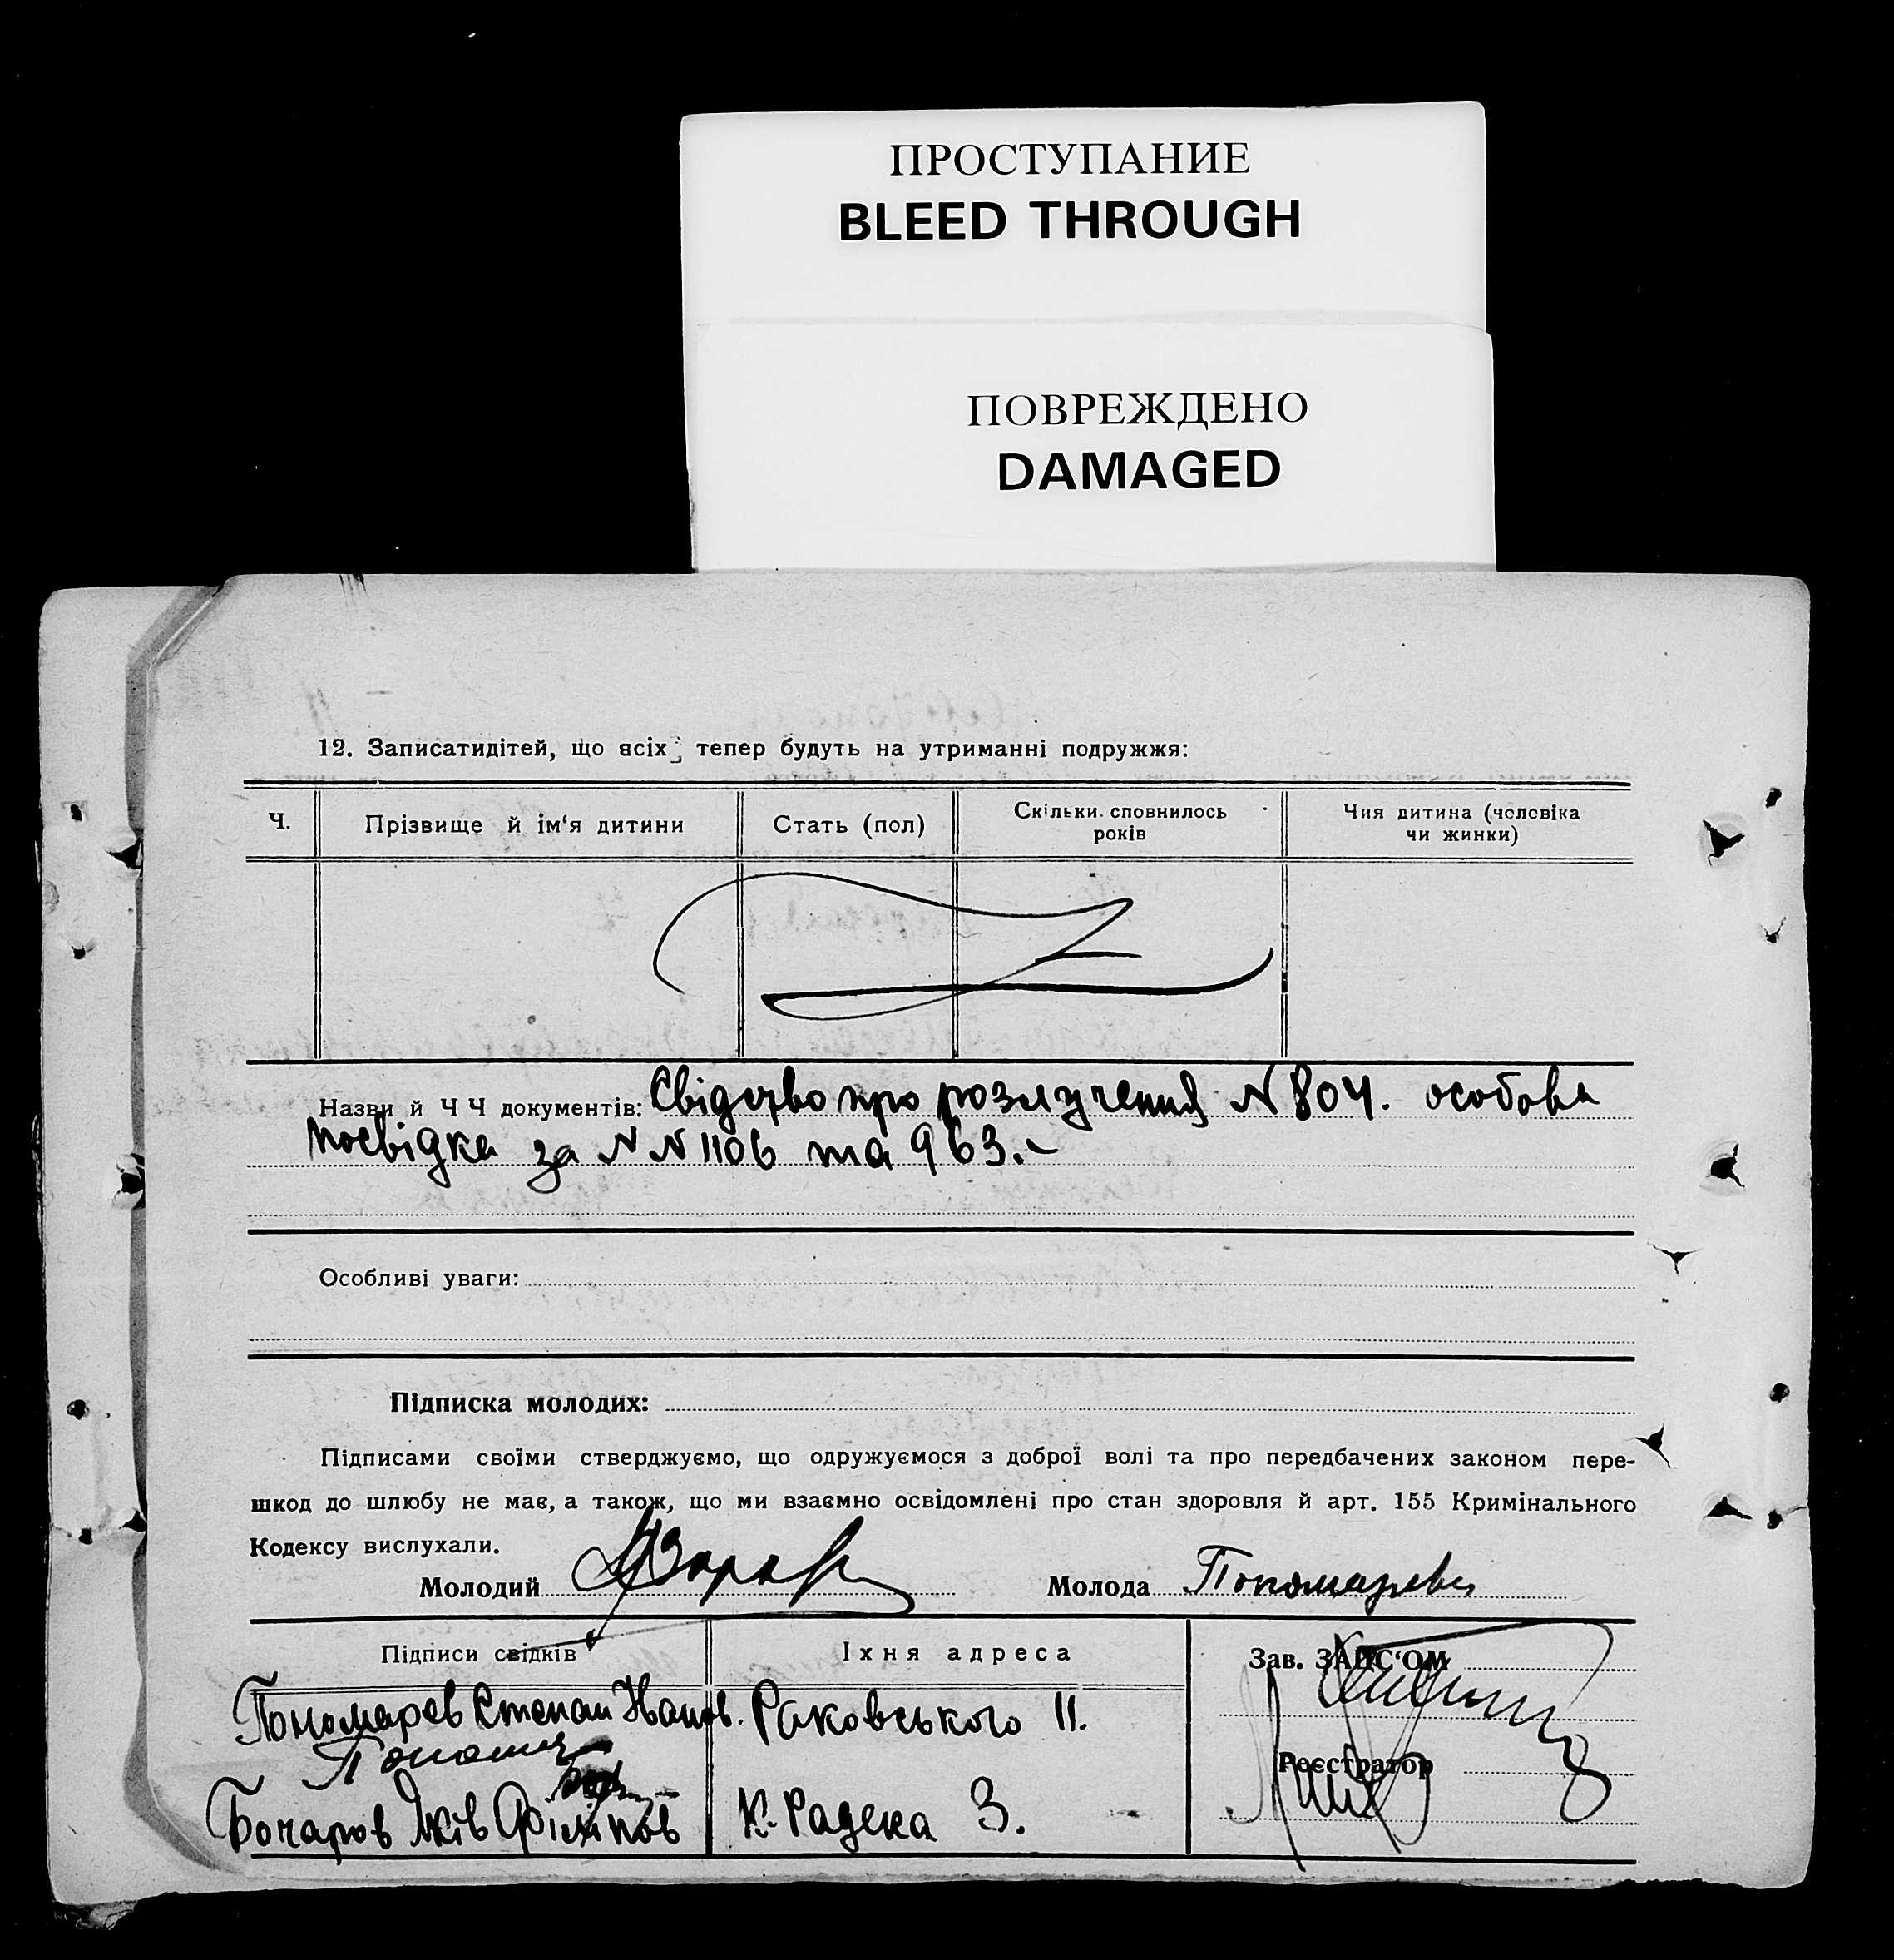 ПРОСТУПАНИЕ
BLEED THROUGH
ПОВРЕЖДЕНО
DAMAGED
12. Записатидітей, що всіх тепер будуть на утриманні подружжя:
Ч.
Прізвище й ім‘я дитини
Стать (пол)
Скільки сповнилось
років
Чия дитина (чоловіка
чи жинки)
Назви й Ч Ч документів: Свідоцтво про розлучення N 804. особова
посвідка за N N 1106 та 963.-
Особливі уваги:
Підписка молодих:
Підписами своїми стверджуємо, що одружуємося з доброї волі та про передбачених законом пере-
шкод до шлюбу не має, а також, що ми взаємно освідомлені про стан здоровля й арт. 155 Кримінального
Кодексу вислухали.
Молодий
Молода Пономарева
Підписи свідків
Їхня адреса
Зав. ЗАПС‘ОМ
Пономарев Степан Іванов. Раковського 11.
Реєстратор
Бочаров Яків Філіпов К. Радека 3.